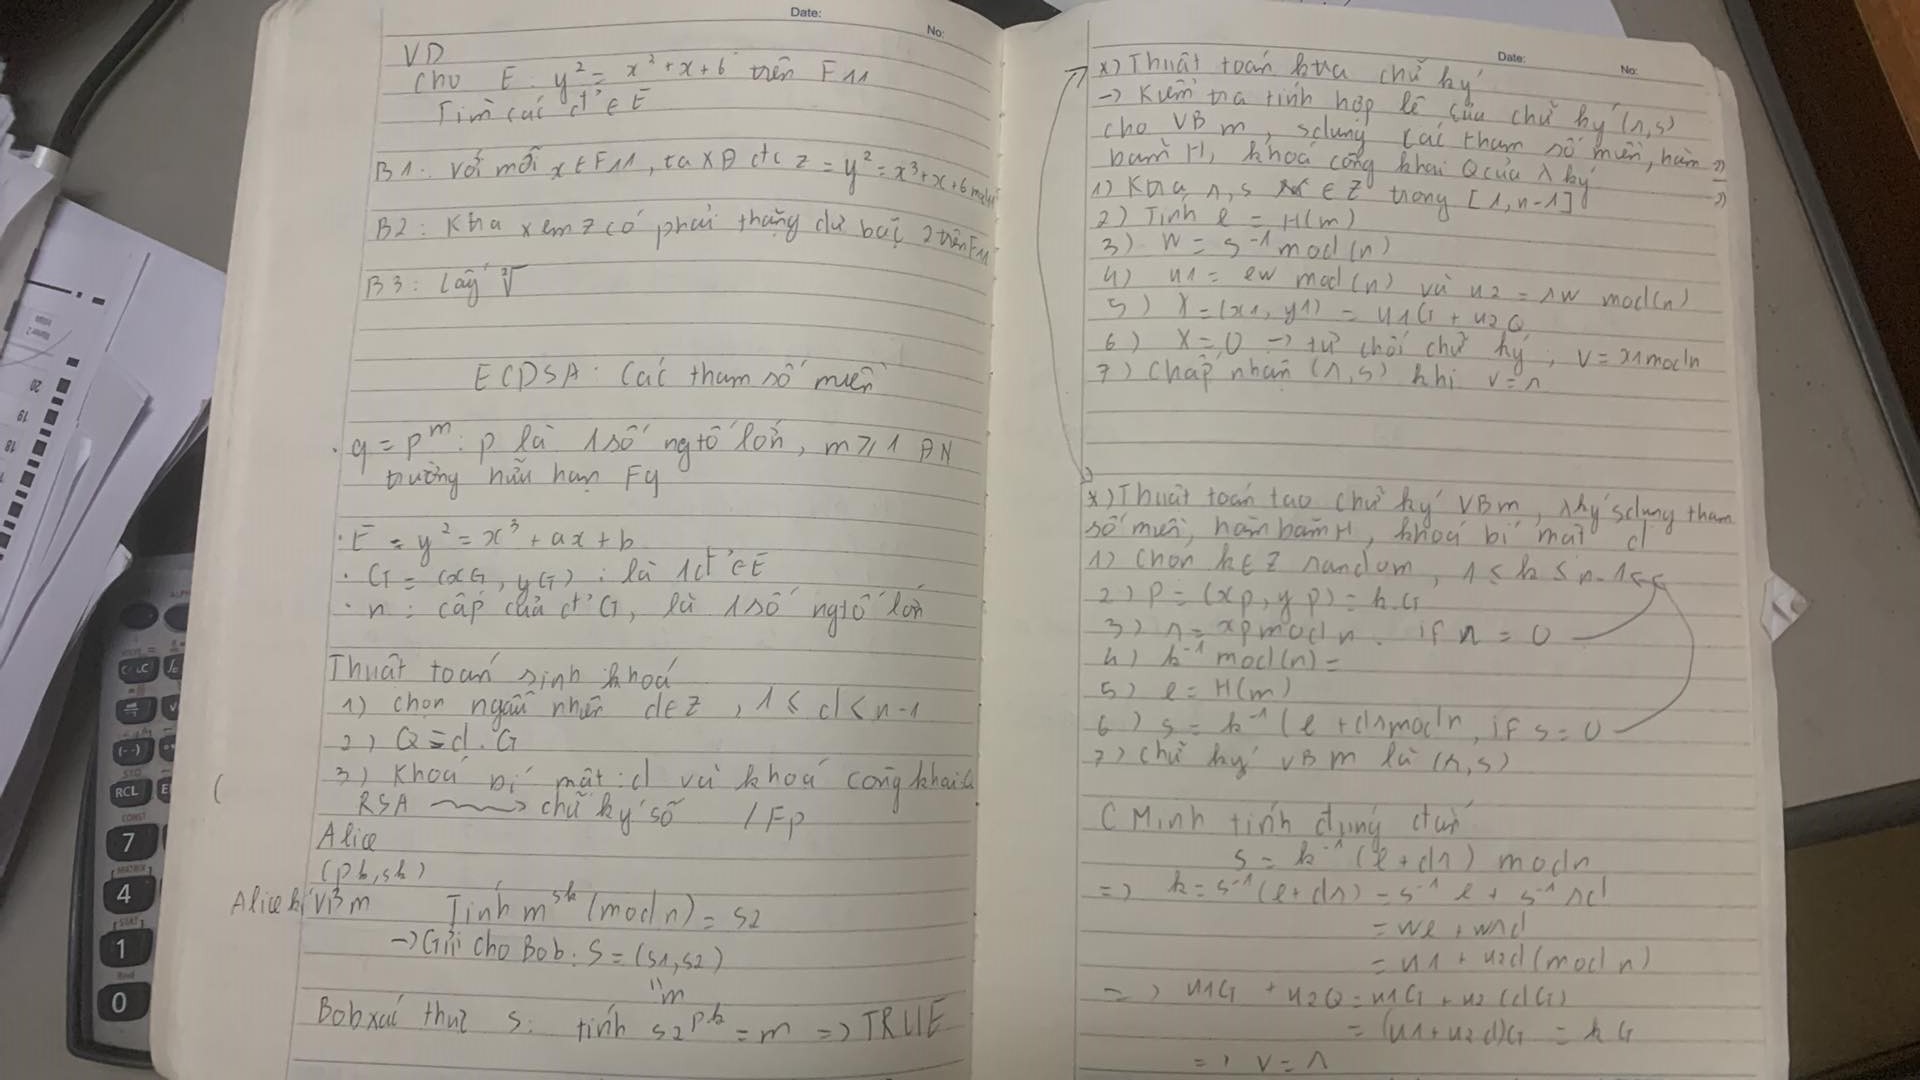 Date:
No:
VD
Cho E: y² = x² + x + 6 trên F11
Tìm các đ' ∈ E
B1: Với mỗi x ∈ F11, ta XĐ đc z = y² = x³ + x + 6 mod 11
B2: Ktra xem z có phải thặng dư bậc 2 trên F11
B3: Lấy √
ECDSA: Các tham số miền
. q = p^m: p là 1 số ngtố lớn, m ≥ 1 ĐN
trường hữu hạn Fq
. E = y² = x³ + ax + b
. G = (xG, yG): là 1 đ' ∈ E
. n: cấp của đ' G, là 1 số ngtố lớn
Thuật toán sinh khoá
1) chọn ngẫu nhiên d ∈ Z, 1 ≤ d ≤ n-1
2) Q = d.G
3) Khoá bí mật: d và khoá công khai: Q
RSA → chữ ký số / Fp
Alice
(pk, sk)
Alice kí VB m Tính m^sk (mod n) = s2
→ Gửi cho Bob: S = (s1, s2)
"m
Bob xác thực S: tính s2^pk = m => TRUE
Date:
No:
*) Thuật toán ktra chữ ký
-> Kiểm tra tính hợp lệ của chữ ký (r,s)
cho VB m, sdụng các tham số miền, hàm
băm H, khoá công khai Q của A ký
1) Ktra r, s ∈ Z trong [1, n-1]
2) Tính e = H(m)
3) W = s⁻¹ mod(n)
4) u1 = ew mod(n) và u2 = rw mod(n)
5) X = (x1, y1) = u1G + u2Q
6) X = 0 -> từ chối chữ ký, v = x1 mod n
7) Chấp nhận (r,s) khi v = r
*) Thuật toán tạo chữ ký VB m, A ký sdụng tham
số miền, hàm băm H, khoá bí mật d
1) Chọn k ∈ Z random, 1 ≤ k ≤ n-1
2) P = (xp, yp) = k.G
3) r = xp mod n. if r = 0
4) k⁻¹ mod(n) =
5) e = H(m)
6) s = k⁻¹ (e + dr mod n, if s = 0
7) Chữ ký VB m là (r,s)
C Minh tính đúng đắn
s = k⁻¹ (e + dr) mod n
=> k = s⁻¹(e + dr) = s⁻¹ e + s⁻¹ rd
= we + wrd
= u1 + u2d (mod n)
=> u1G + u2Q = u1G + u2(dG)
= (u1 + u2d)G = kG
=> v = r
RCL
7
4
1
0